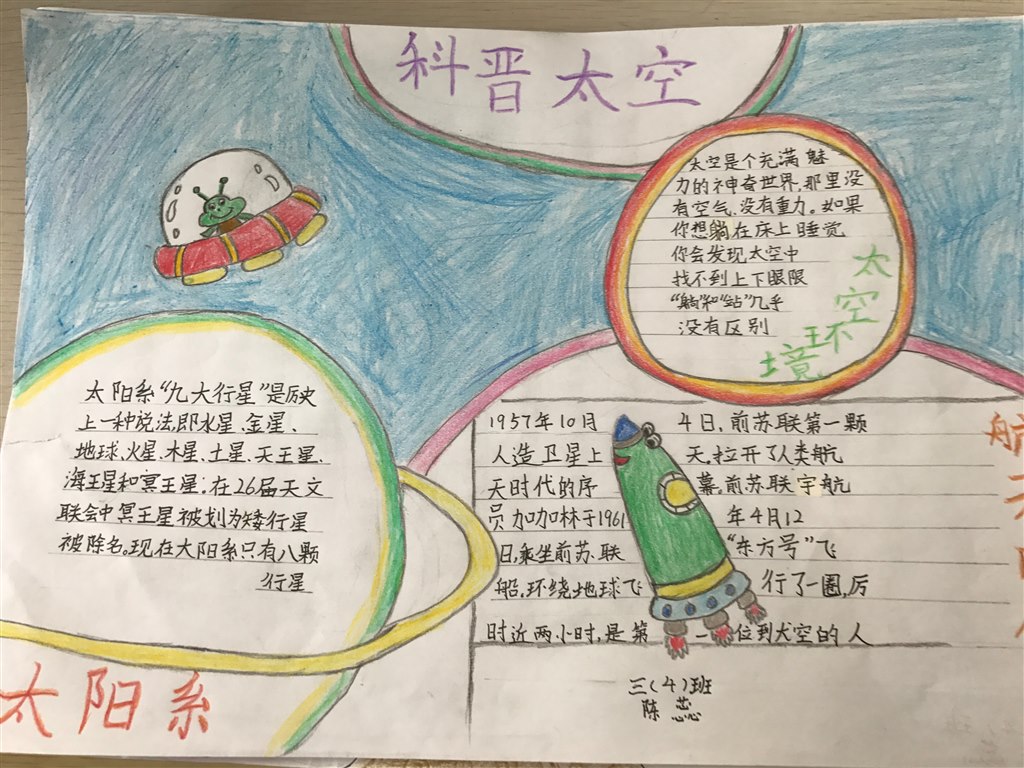 科晋太空
太空是个充满魅
力的神奇世界,那里没
有空气、没有重力。如果
你想躺在床上睡觉
你会发现太空中
找不到上下眼限
“躺”和“站”几乎
没有区别
太空环境
太阳系“九大行星”是历史
上一种说法,即水星、金星、
地球、火星、木星、土星、天王星、
海王星和冥王星;在26届天文
联会中冥王星被划为矮行星
被除名。现在太阳系只有八颗
行星
太阳系
1957年10月4日,前苏联第一颗
人造卫星上天,拉开了人类航
天时代的序幕。前苏联宇航
员加加林于1961年4月12
日,乘坐前苏联“东方号”飞
船,环绕地球飞行了一圈,历
时近两小时,是第一位到太空的人
航
三(4)班
陈蕊